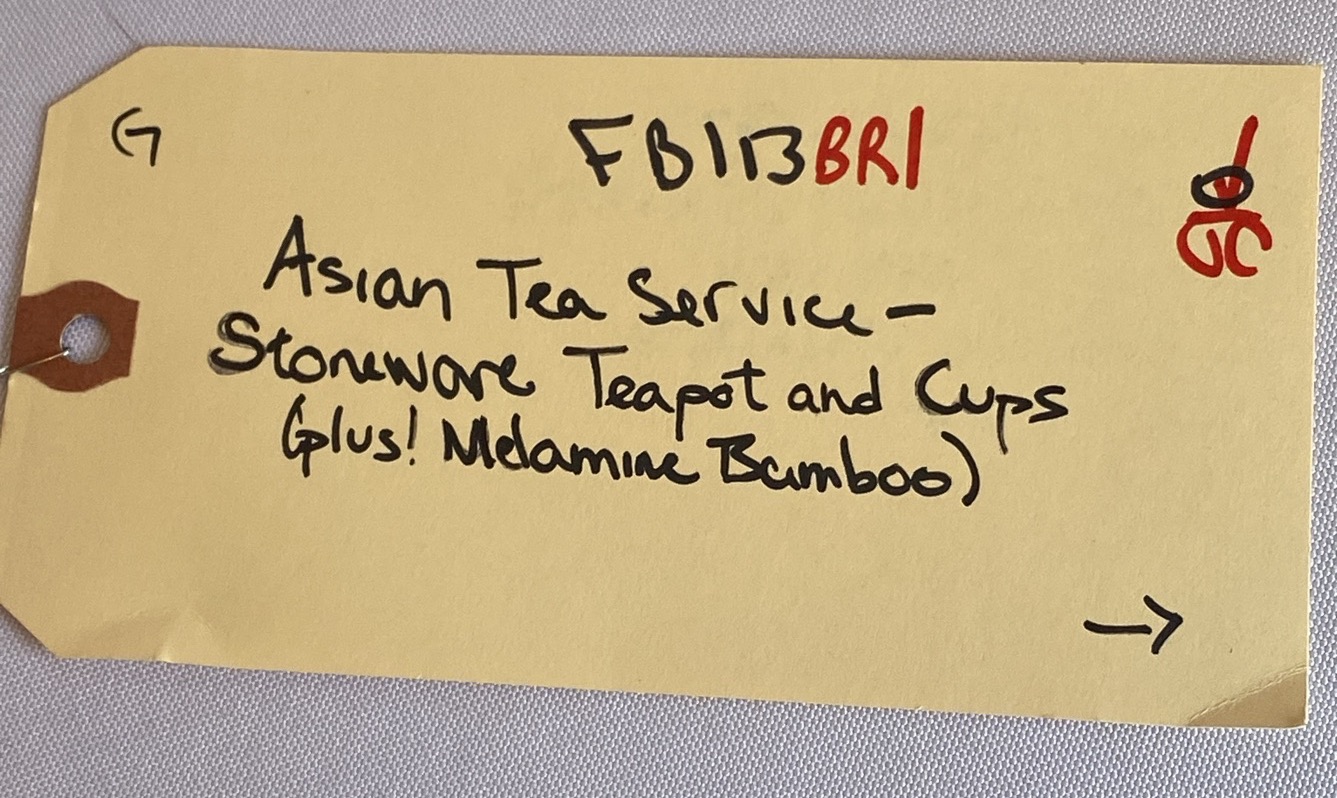 G
FB113BRI
Asian Tea Service –
Stoneware Teapot and Cups
(plus! Melamine Bamboo)
→